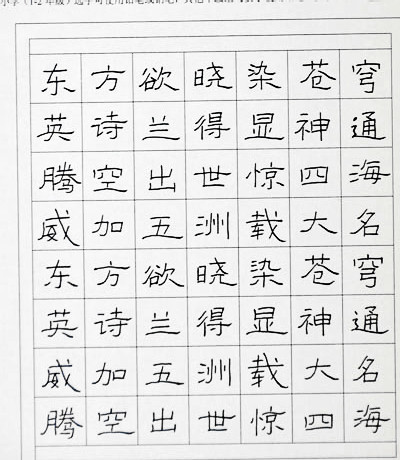 东方欲晓染苍穹
英诗兰得显神通
腾空出世惊四海
威加五洲载大名
东方欲晓染苍穹
英诗兰得显神通
威加五洲载大名
腾空出世惊四海